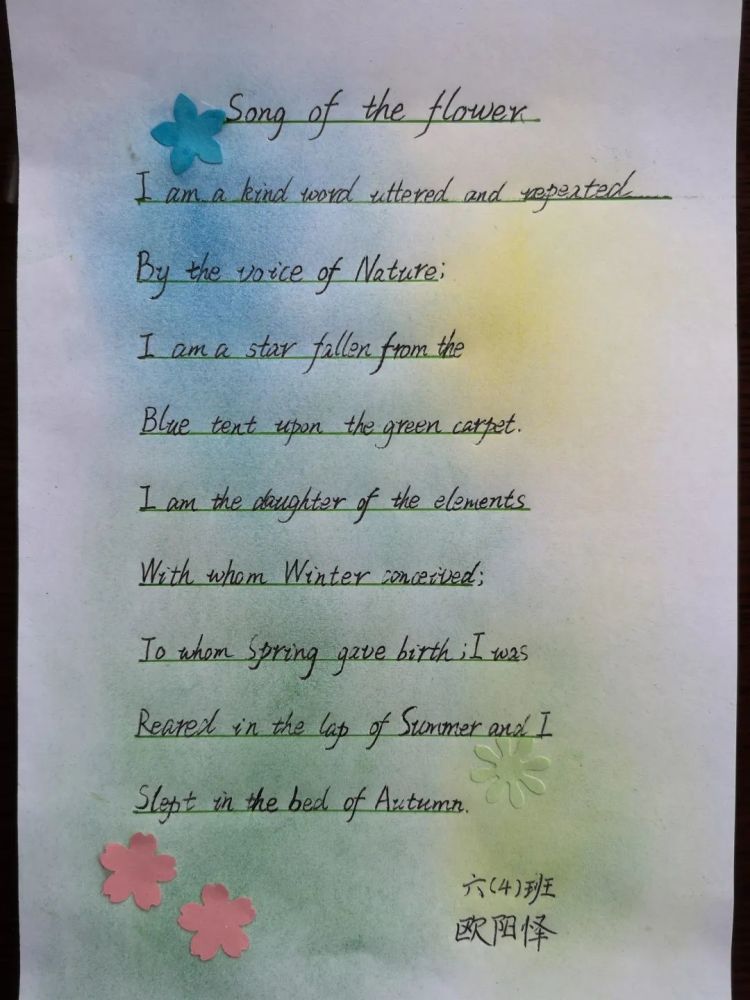 Song of the flower
I am a kind word uttered and repeated
By the voice of Nature;
I am a star fallen from the
Blue tent upon the green carpet.
I am the daughter of the elements
With whom Winter conceived;
To whom Spring gave birth; I was
Reared in the lap of Summer and I
Slept in the bed of Autumn.
六(4)班
欧阳怿